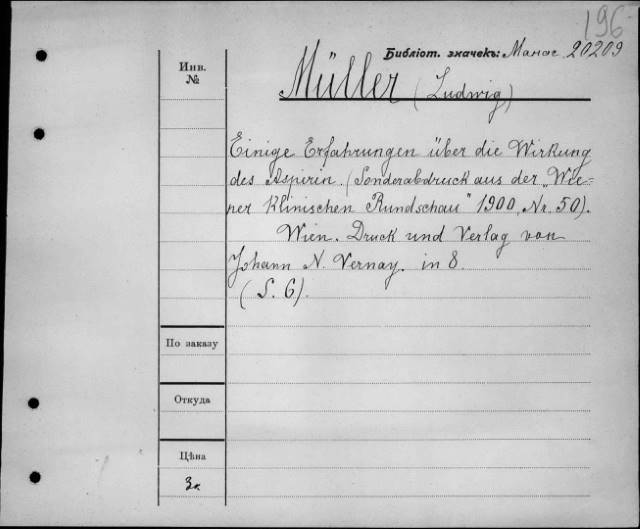 196
Библіот. значекъ: Манас. 20209
Инв.
№
Müller (Ludwig)
Einige Erfahrungen über die Wirkung
des Aspirin. (Sonderabdruck aus der „Wie-
ner klinischen Rundschau" 1900, Nr. 50).
Wien. Druck und Verlag von
Johann N. Vernay. in 8.
(S. 6).
По заказу
Откуда
Цѣна
3к